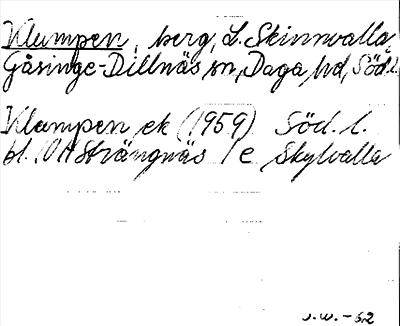 Klumpen, berg, L. Skinnvalla,
Gåsinge-Dillnäs sn, Daga hd, Söd. l.
Klumpen ek (1959) Söd. l.
bl. 10 H Strängnäs / e Skylvalla
J.W. -62